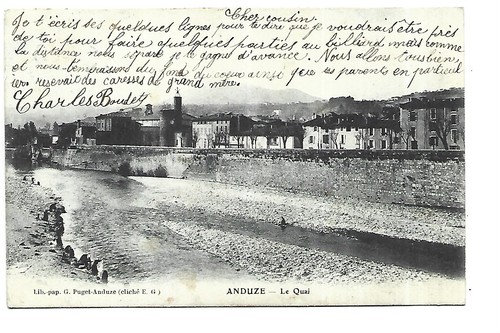 Cher cousin
Je t'écris ses quelques lignes pour te dire que je voudrais être près
de toi pour faire quelques parties au billiard mais comme
la distance nous sépare je te gagne d'avance. Nous allons tous bien
et nous t'embrassons du fond du coeur ainsi que tes parents en particulier
reservait des caresses de grand mère.
Charles Boudet
Lib.-pap. G. Puget-Anduze (cliché E. G.)
ANDUZE — Le Quai